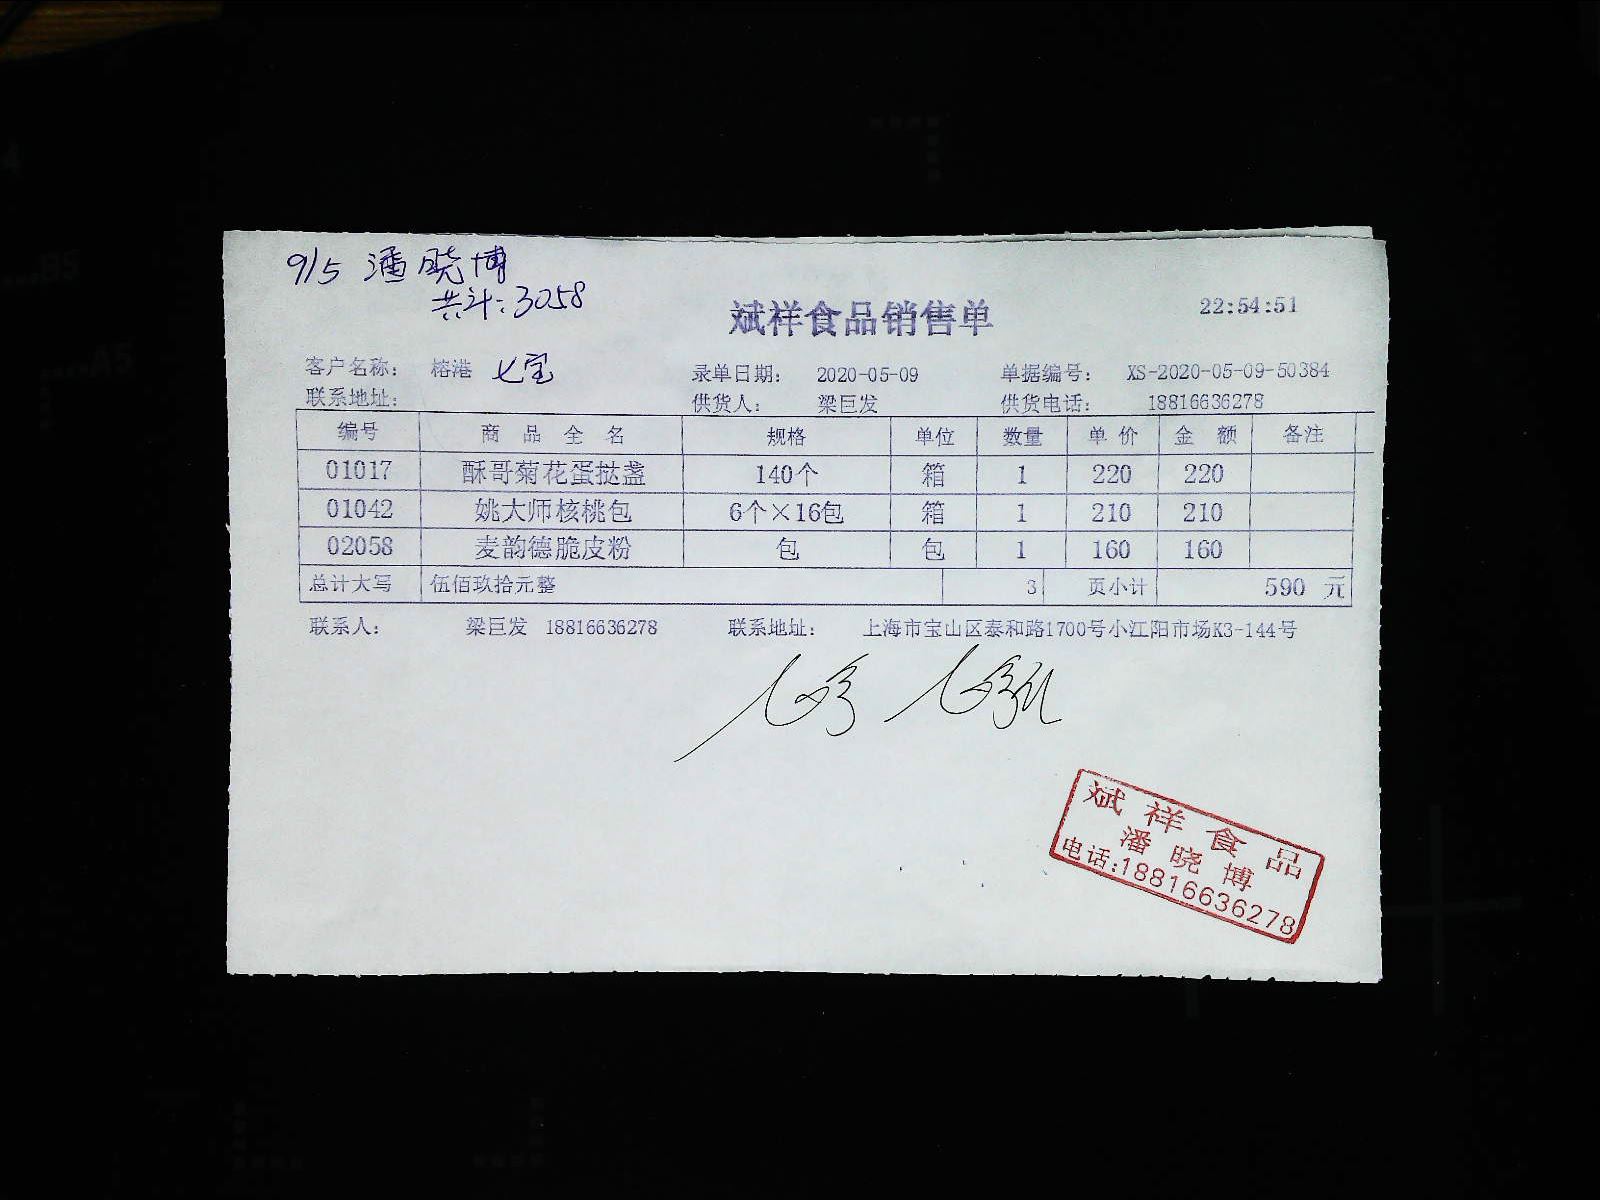 9/5 潘晓博
共计:3058
斌祥食品销售单
22:54:51
客户名称: 榕港 七宝 录单日期: 2020-05-09 单据编号: XS-2020-05-09-50384
联系地址: 供货人: 梁巨发 供货电话: 18816636278
编号 商品全名 规格 单位 数量 单价 金额 备注
01017 酥哥菊花蛋挞盏 140个 箱 1 220 220
01042 姚大师核桃包 6个×16包 箱 1 210 210
02058 麦韵德脆皮粉 包 包 1 160 160
总计大写 伍佰玖拾元整 3 页小计 590 元
联系人: 梁巨发 18816636278 联系地址: 上海市宝山区泰和路1700号小江阳市场K3-144号
斌祥食品
潘晓博
电话:18816636278